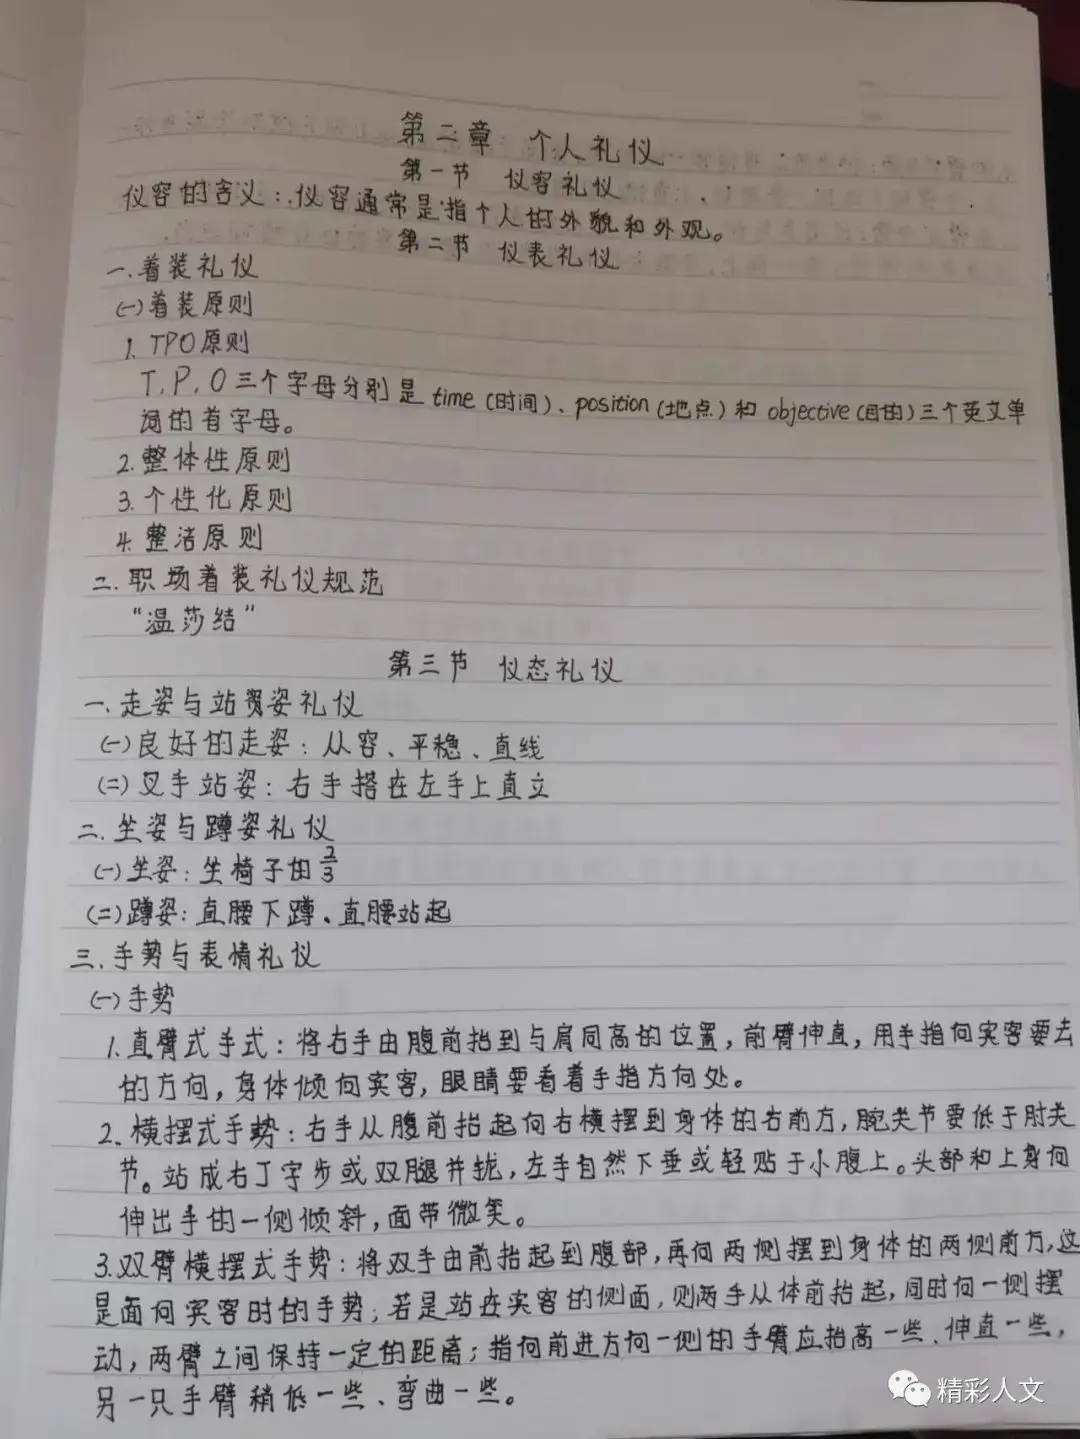 第二章 个人礼仪
第一节 仪容礼仪
仪容的含义：仪容通常是指个人的外貌和外观。
第二节 仪表礼仪
一.着装礼仪
(一)着装原则
1. TPO原则
T.P.O三个字母分别是 time (时间)、position (地点) 和 objective (目的) 三个英文单
词的首字母。
2.整体性原则
3.个性化原则
4.整洁原则
二.职场着装礼仪规范
“温莎结”
第三节 仪态礼仪
一.走姿与站姿礼仪
(一)良好的走姿：从容、平稳、直线
(二)叉手站姿：右手搭在左手上直立
二.坐姿与蹲姿礼仪
(一)坐姿：坐椅子的2/3
(二)蹲姿：直腰下蹲、直腰站起
三.手势与表情礼仪
(一)手势
1.直臂式手式：将右手由腹前抬到与肩同高的位置，前臂伸直，用手指向宾客要去
的方向，身体倾向宾客，眼睛要看着手指方向处。
2.横摆式手势：右手从腹前抬起向右横摆到身体的右前方，腕关节要低于肘关
节。站成右丁字步或双腿并拢，左手自然下垂或轻贴于小腹上。头部和上身向
伸出手的一侧倾斜，面带微笑。
3.双臂横摆式手势：将双手由前抬起到腹部，再向两侧摆到身体的两侧前方，这
是面向宾客时的手势；若是站在宾客的侧面，则两手从体前抬起，同时向一侧摆
动，两臂之间保持一定的距离；指向前进方向一侧的手臂应抬高一些、伸直一些，
另一只手臂稍低一些、弯曲一些。
精彩人文